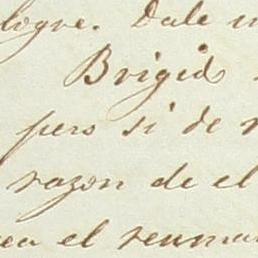 logre. Dale
Brigido
pero si de
razon de el
el reuma